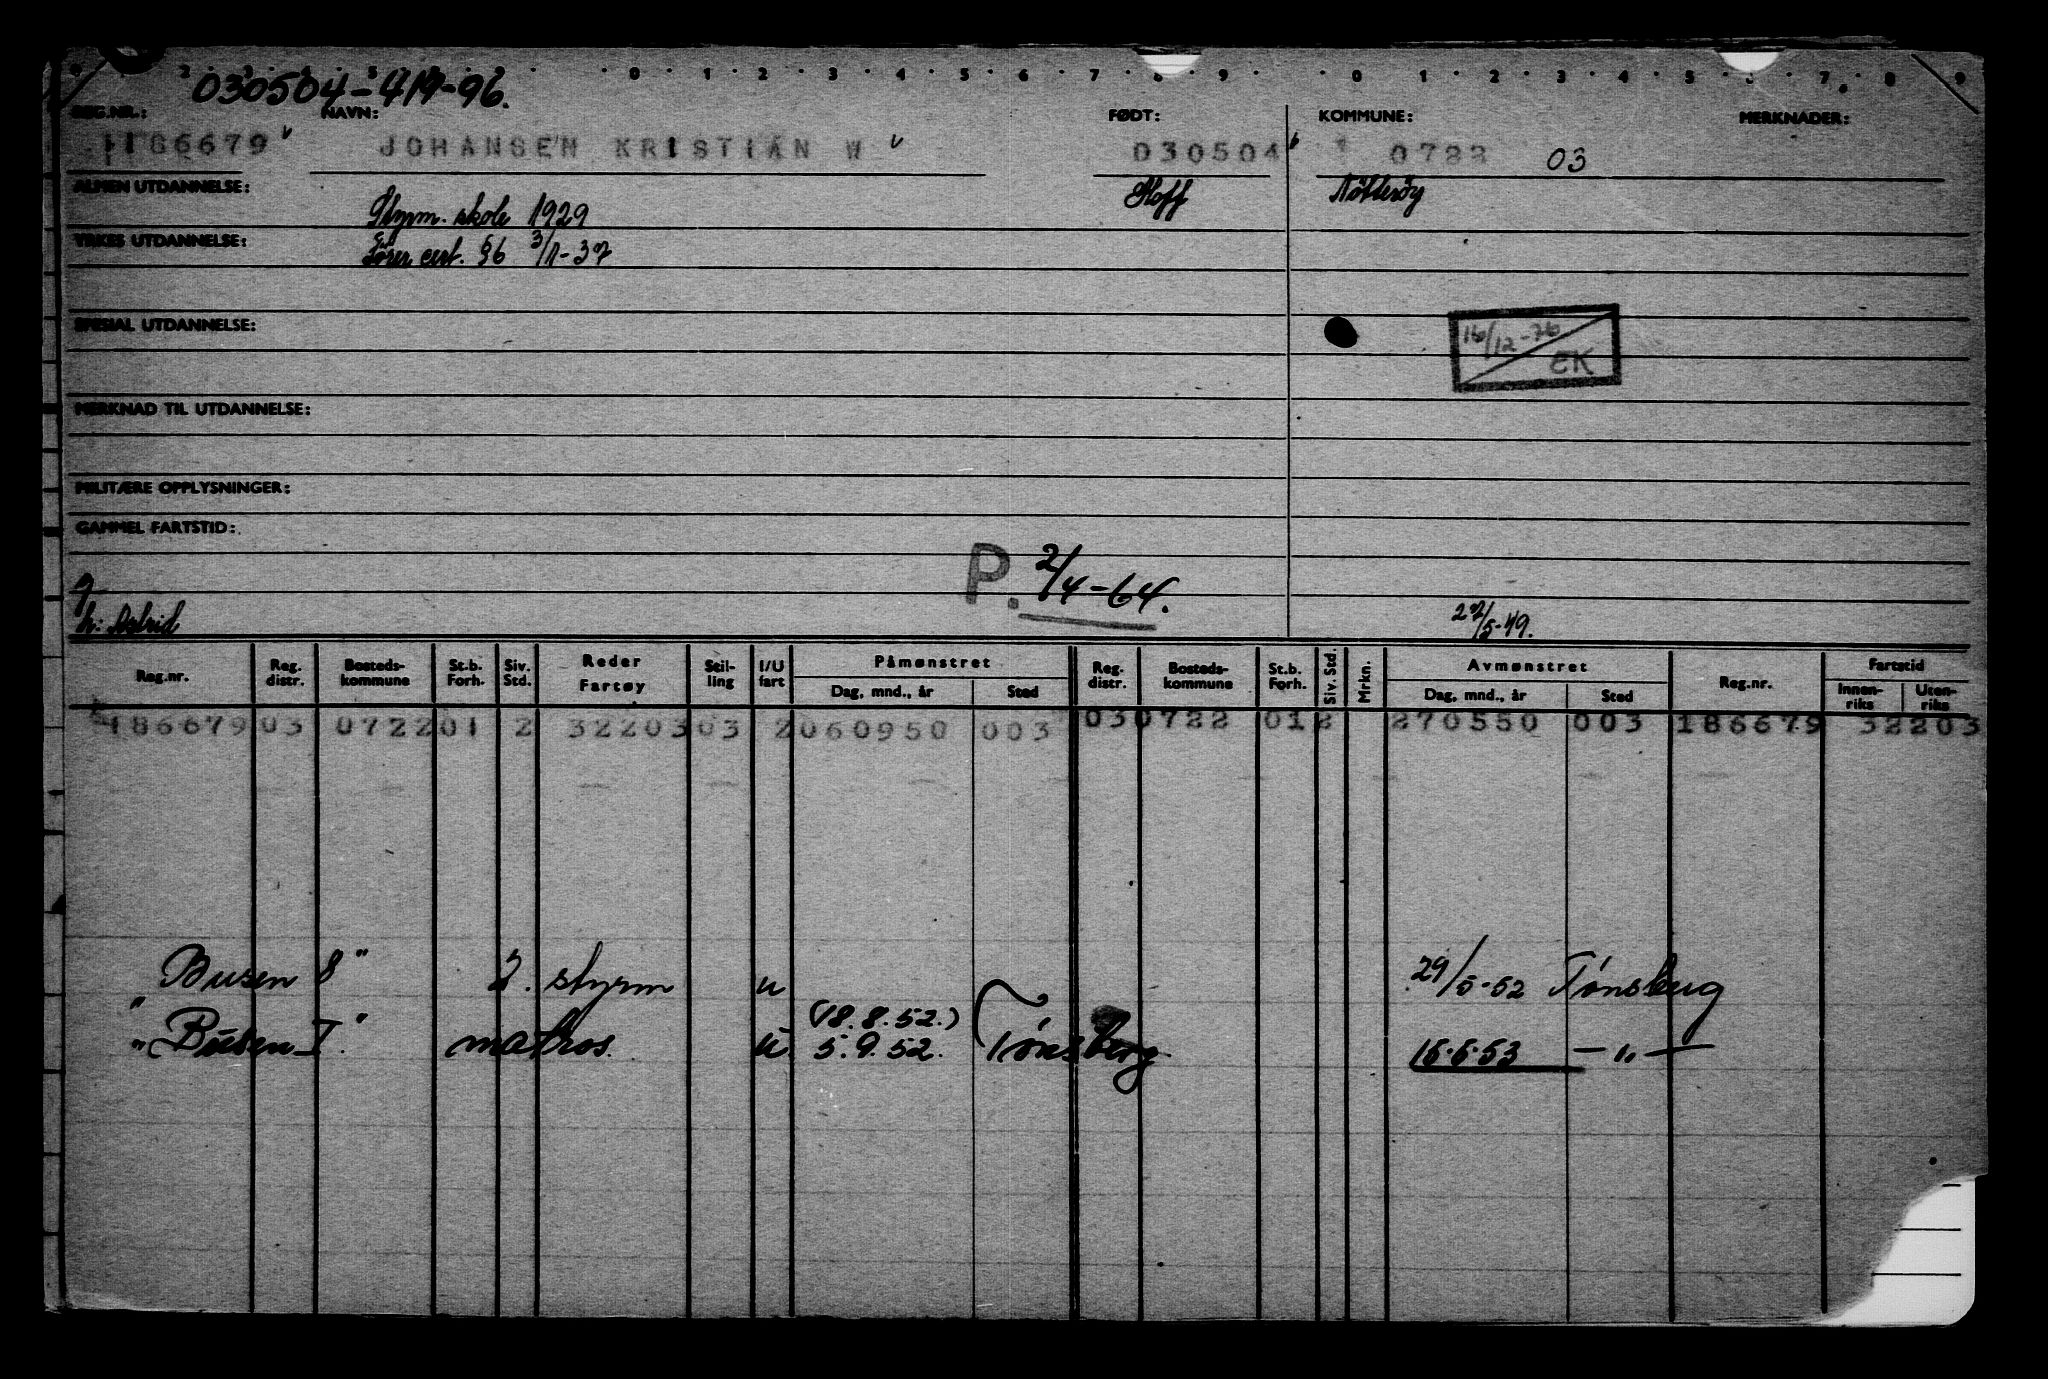 030504-419-96.
0 1 2 3 4 5 6 7 8 9 0 1 2 3 4 5 7 8 9
REG.NR.: NAVN: FØDT: KOMMUNE: MERKNADER:
186679 JOHANSEN KRISTIAN W 030504 0722 03
ALMEN UTDANNELSE: Styrm. skole 1929 Hoff Nøtterøy
YRKES UTDANNELSE: Fører cert. §6 3/11-37
SPESIAL UTDANNELSE:
16/12-76 EK
MERKNAD TIL UTDANNELSE:
MILITÆRE OPPLYSNINGER:
GAMMEL FARTSTID:
P. 2/4-64.
g
h: Astrid 27/5-49.
Reg.nr. Reg. distr. Bosteds-kommune St.b. Forh. Siv. Std. Reder Fartøy Stil-ling I/U fart Påmønstret Dag, mnd., år Sted Reg. distr. Bosteds-kommune St.b. Forh. Siv. Std. Mrkn. Avmønstret Dag, mnd., år Sted Reg.nr. Fartstid Innen-riks Uten-riks
186679 03 0722 01 2 32203 03 2 060950 003 03 0722 01 2 270550 003 186679 32203
"Busen 8" 2. styrm u 29/5-52 Tønsberg
(18.8.52.)
"Busen I." matros. u 5.9.52. Tønsberg 15.5.53 — " —